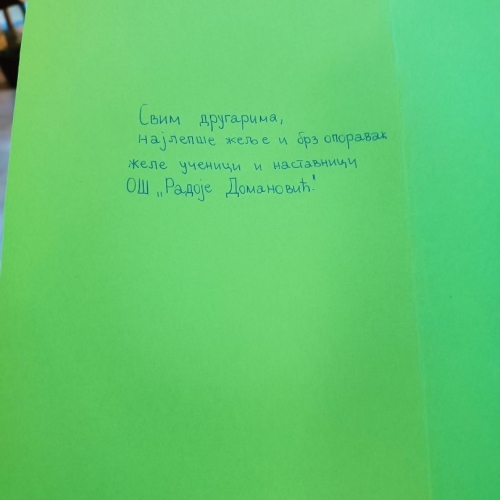 Свим другарима,
најлепше жеље и брз опоравак
желе ученици и наставници
ОШ „Радоје Домановић"!